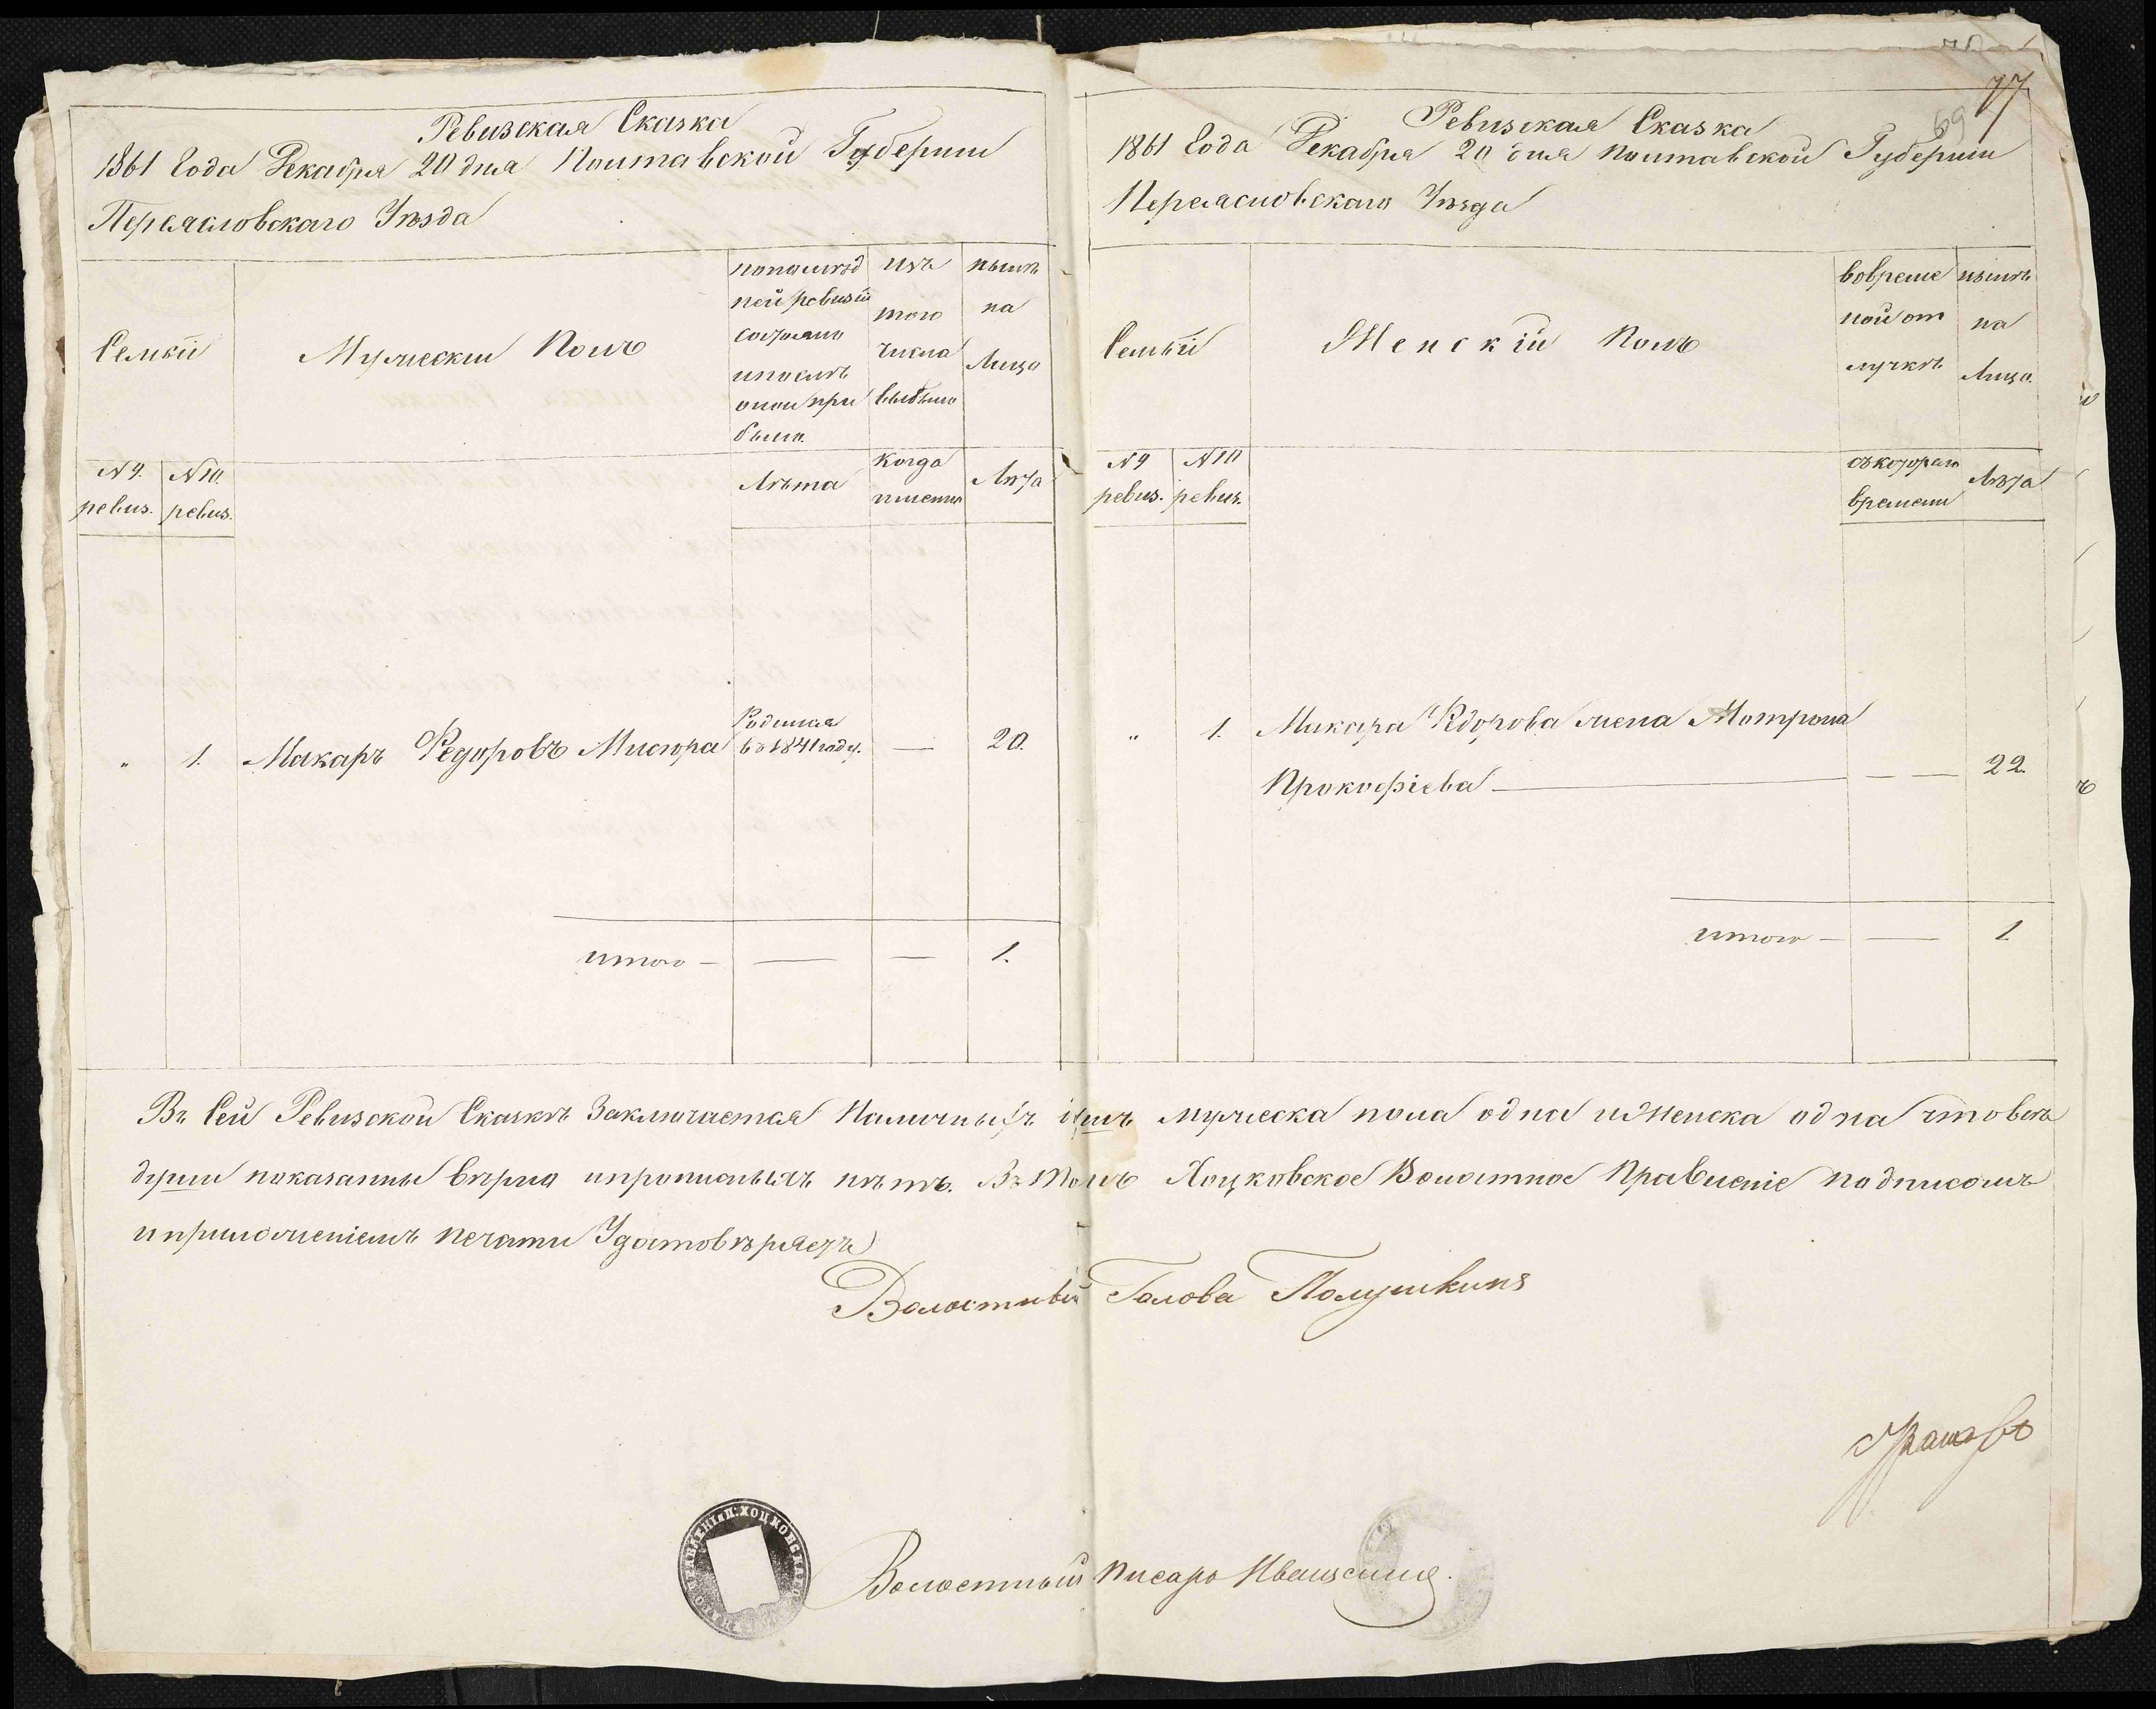 Ревизская Сказка
1861 Года Декабря 20 дня Полтавской Губернии
Переясловскаго Уѣзда
Семьи
Мужескии Полъ
попослѣд
ней ревизіи
состояло
ипослѣ
онои при
было.
изъ
того
числа
выбыло
нынѣ
на
Лицо
№ 9.
ревиз.
№ 10.
ревиз.
Лѣта
когда
именно
Лѣта
" 1. Макаръ Федоровъ Мисюра
Родился
въ 1841 году.
— 20.
итого — — — 1.
77
69
Ревизская Сказка
1861 Года Декабря 20 дня Полтавской Губернии
Переясловскаго Уѣзда
Семьи
Женскій Полъ
вовреме
ной от
лучкѣ
нынѣ
на
Лицо.
№ 9
ревиз.
№ 10
ревиз.
съкотораго
времени
Лѣта
" 1. Макара Фдорова жена Мотрона
Прокофіева — — — 22.
итого — — 1
Въ Сей Ревизской Сказкѣ Заключается Наличныхъ мужеска пола одна иЖенска одна чтовсѣ
души показанны вѣрно ипрописныхъ нѣтъ. Въ Томъ Хоцковское Волостное Правленіе подписомъ
иприложеніемъ печати Удостовѣряетъ
Волостный Голова Полушкинъ
П. ХОЦКОВСКАГО
Волостный писарь